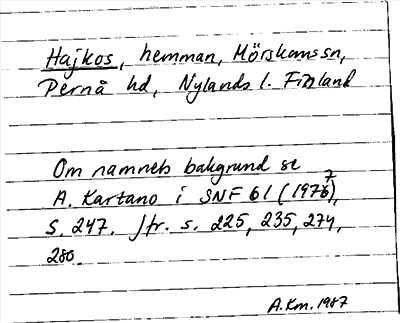 Hajkos, hemman, Mörskoms sn,
Pernå hd, Nylands l. Finland
Om namnets bakgrund se
A. Kartano i SNF 61 (1977),
s. 247. Jfr. s. 225, 235, 274,
280.
A.Km. 1987